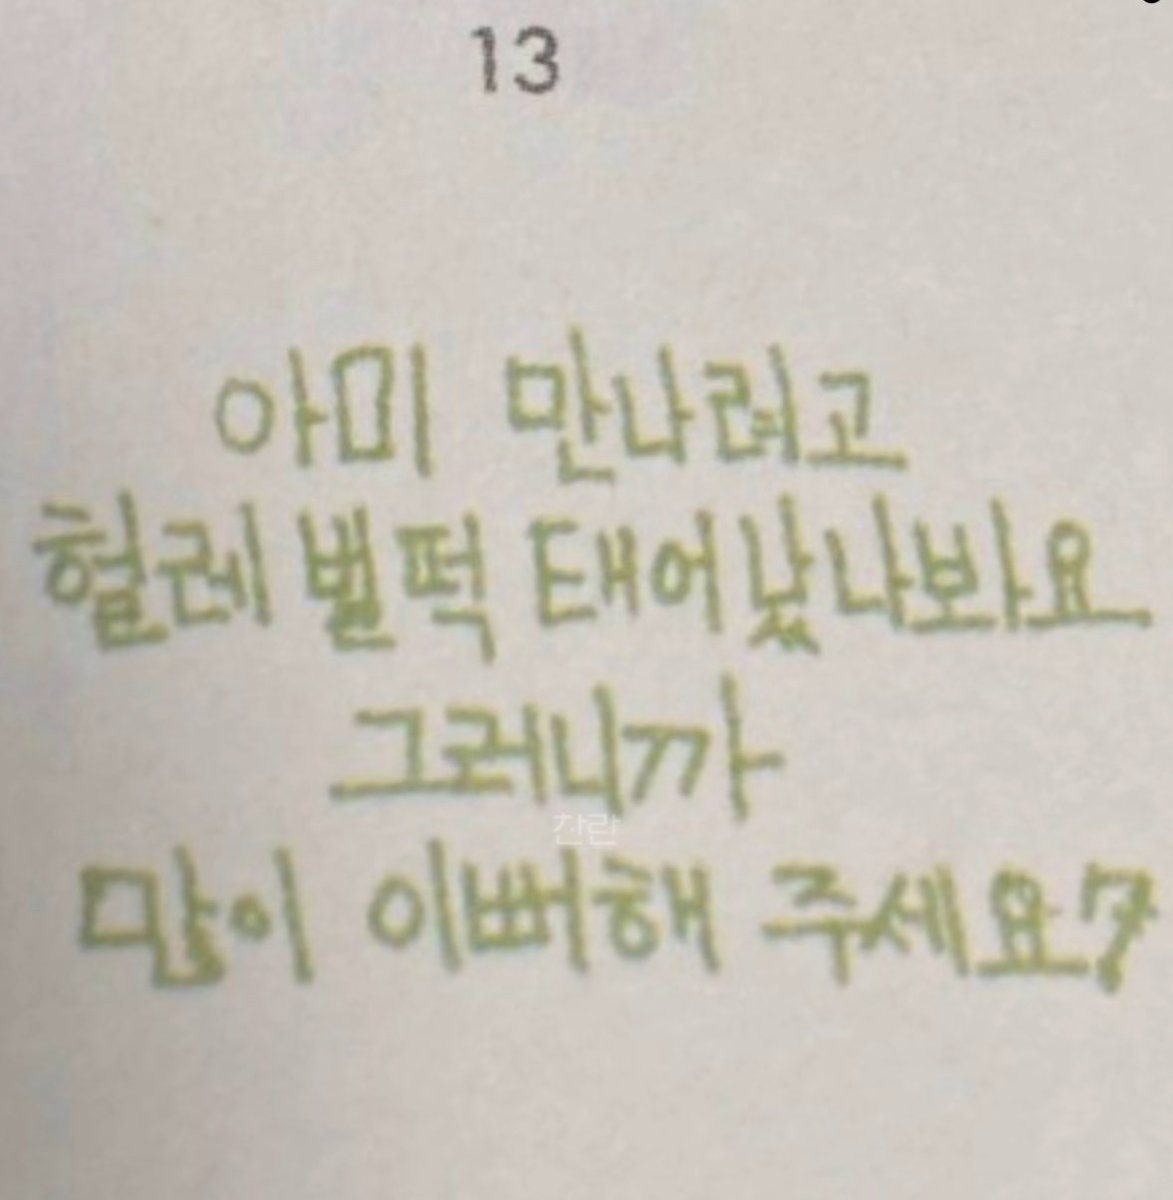 13
아미 만나려고
헐레벌떡 태어났나봐요
그러니까
찬란
많이 이뻐해 주세요?